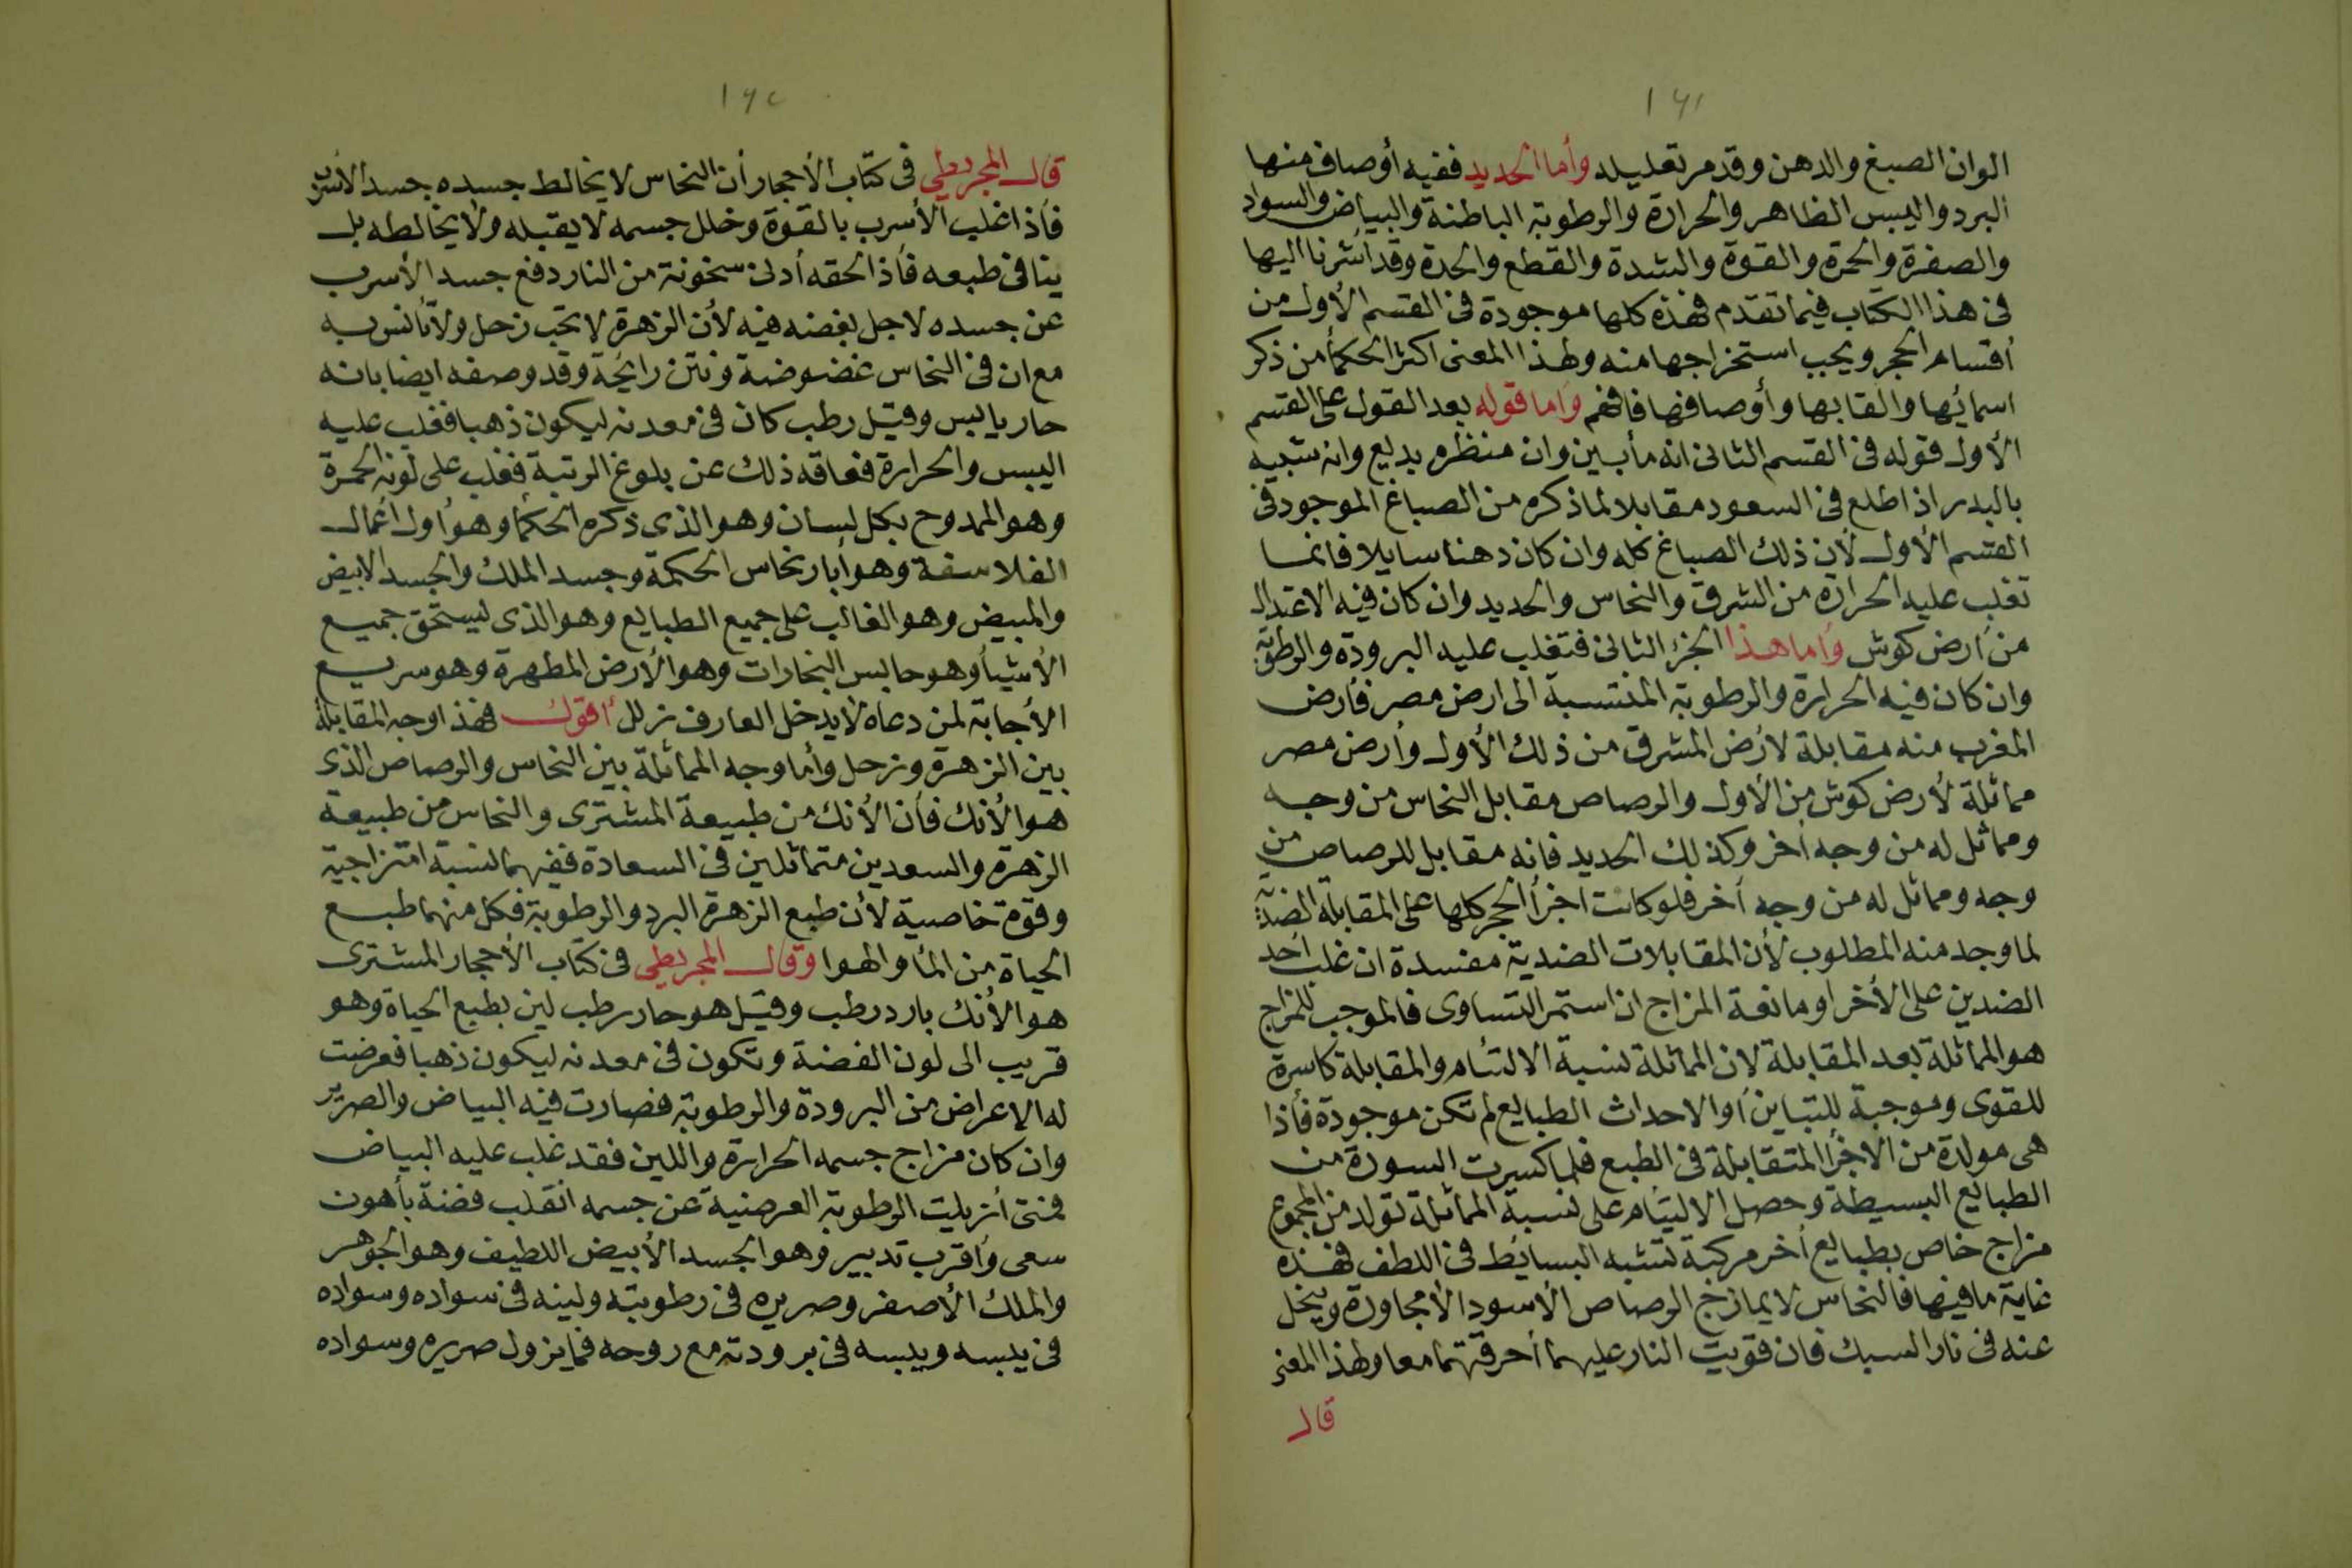 ١٦١
الوان الصبغ والدهن وقد مر تعليله وأما الحديد ففيه أوصاف منها
البرد واليبس الظاهر والحرارة والرطوبة الباطنة والبياض والسواد
والصفرة والحمرة والقوة والشدة والقطع والحدة وقد أشرنا اليها
فى هذا الكتاب فيما تقدم فهذه كلها موجودة فى القسم الأول من
أقسام الحجر ويجب استخراجها منه ولهذا المعنى اكثر الحكمأ من ذكر
اسمائها والقابها وأوصافها فافهم وأما قوله بعد القول على القسم
الأول قوله فى القسم الثانى انه مأبين وان منظره بديع وانه شبيه
بالبدر اذ اطلع فى السعود مقابلا لما ذكره من الصباغ الموجود فى
القسم الأول لأن ذلك الصباغ كله وان كان دهنا سايلا فانما
تغلب عليه الحرارة من الشرق والنحاس والحديد وان كان فيه الاعتدال
من أرض كوش وأما هذا الجزء الثانى فتغلب عليه البرودة والرطوبة
وان كان فيه الحرارة والرطوبة المنتسبة الى ارض مصر فأرض
المغرب منه مقابلة لأرض المشرق من ذلك الأول وأرض مصر
مماثلة لأرض كوش من الأول والرصاص مقابل النحاس من وجه
ومماثل له من وجه أخر وكذلك الحديد فانه مقابل للرصاص من
وجه ومماثل له من وجه أخر فلو كانت اجزأ الحجر كلها على المقابلة الضدية
لما وجد منه المطلوب لأن المقابلات الضدية مفسدة ان غلب أحد
الضدين على الأخر او مانعة المزاج ان استمر التساوى فالموجب للمزاج
هو المماثلة بعد المقابلة لان المماثلة نسبة الالتئام والمقابلة كاسرة
للقوى وموجبة للتباين أو الاحداث الطبايع لم تكن موجودة فأذا
هى مولدة من الاجزأ المتقابلة فى الطبع فلما كسرت السورة من
الطبايع البسيطة وحصل الالتيام على نسبة المماثلة تولد من المجموع
مزاج خاص بطبايع أخر مركبة تشبه البسايط فى اللطف فهذه
غاية ما فيها فالنحاس لا يمازج الرصاص الأسود الأ مجاورة ويتخل
عنه فى نار السبك فان قويت النار عليهما أحرقتهما معا ولهذا المعنى
قال
١٦٢
قال المجريطي فى كتاب الأحجار أن النحاس لا يخالط جسده جسد الأسرب
فأذا غلب الأسرب بالقوة وخلل جسمه لا يقبله ولا يخالطه بل
ينافى طبعه فأذا لحقه أدنى سخونة من النار دفع جسد الأسرب
عن جسده لاجل بغضه فيه لأن الزهرة لا تحب زحل ولا تأنس به
مع ان فى النحاس غضوضة ونتن رايحة وقد وصفه ايضا بانه
حار يابس وقيل رطب كان فى معدنه ليكون ذهبا فغلب عليه
اليبس والحرارة فعاقه ذلك عن بلوغ الرتبة فغلب على لونه الحمرة
وهو الممدوح بكل لسان وهو الذى ذكره الحكمأ وهو أول اعمال
الفلاسفة وهو أبار نحاس الحكمة وجسد الملك والجسد الابيض
والمبيض وهو الغالب على جميع الطبايع وهو الذى ليستحق جميع
الأشيأ وهو حابس البخارات وهو الأرض المطهرة وهو سريع
الأجابة لمن دعاه لا يدخل العارف زلل أقول فهذا وجه المقابلة
بين الزهرة وزحل وأما وجه المماثلة بين النحاس والرصاص الذى
هو الأنك فأن الأنك من طبيعة المشترى والنحاس من طبيعة
الزهرة والسعدين متماثلين فى السعادة ففيهما نسبة امتزاجية
وقوة خاصية لأن طبع الزهرة البرد والرطوبة فكل منهما طبع
الحياة من المأ والهوا وقال المجريطي فى كتاب الأحجار المشترى
هو الأنك بارد رطب وقيل هو حار رطب لين بطبع الحياة وهو
قريب الى لون الفضة وتكون فى معدنه ليكون ذهبا فعرضت
له الاعراض من البرودة والرطوبة فصارت فيه البياض والصرير
وان كان مزاج جسمه الحرارة واللين فقد غلب عليه البياض
فمتى أزيلت الرطوبة العرضية عن جسمه انقلب فضة بأهون
سعى وأقرب تدبير وهو الجسد الأبيض اللطيف وهو الجوهر
والملك الأصفر وصريره فى رطوبته ولينه فى سواده وسواده
فى يبسه ويبسه فى برودته مع روحه فما يزول صريره وسواده